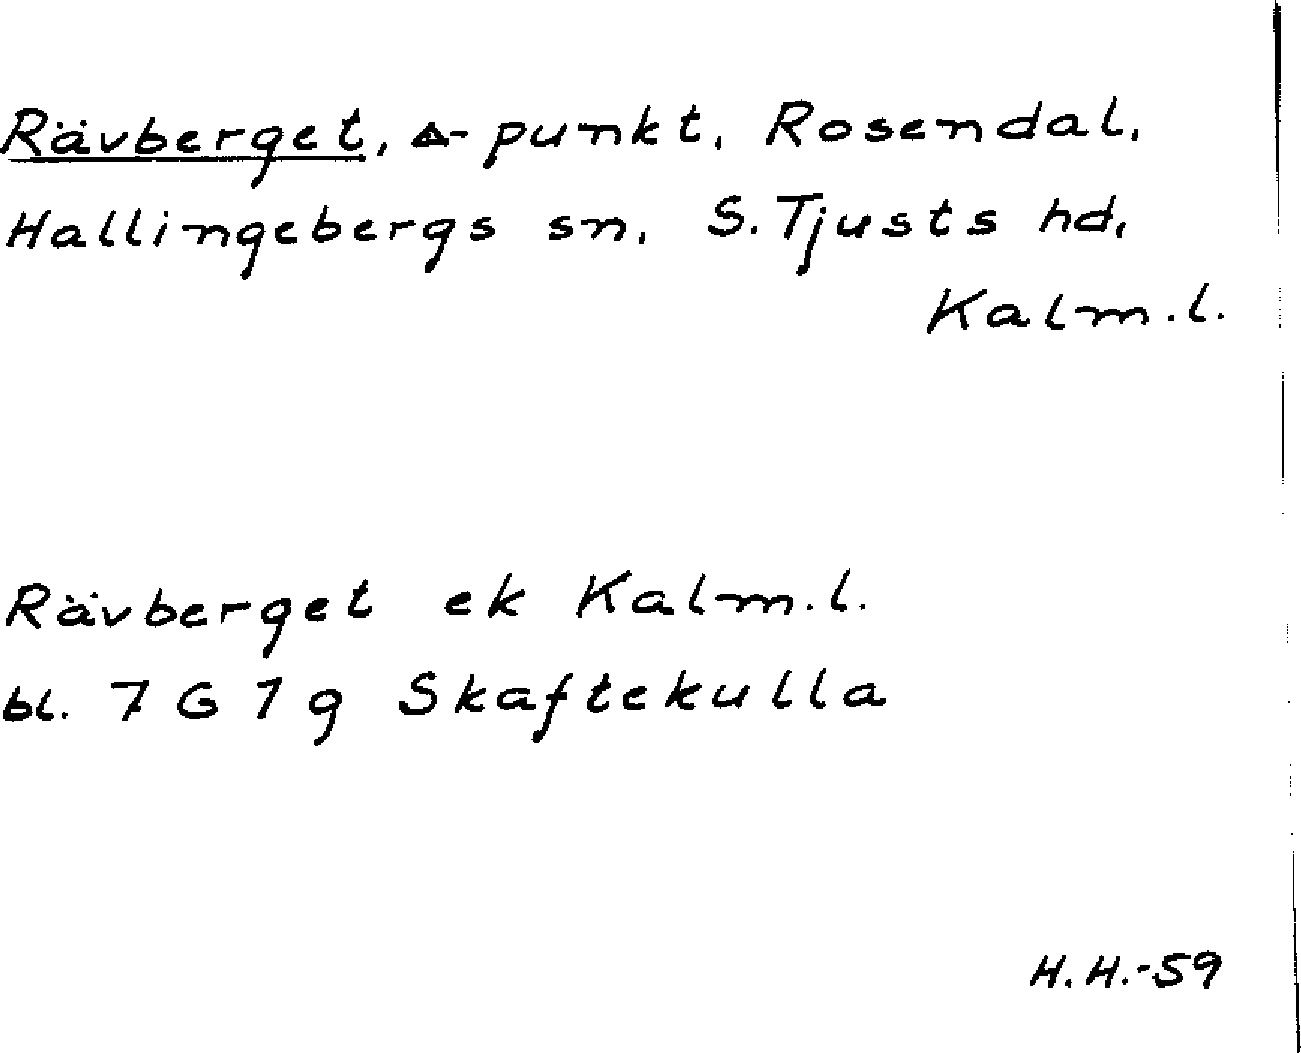 Rävberget, △-punkt, Rosendal,
Hallingebergs sn, S. Tjusts hd,
Kalm.l.
Rävberget ek Kalm.l.
bl. 7 G 1 g Skaftekulla
H.H.-59